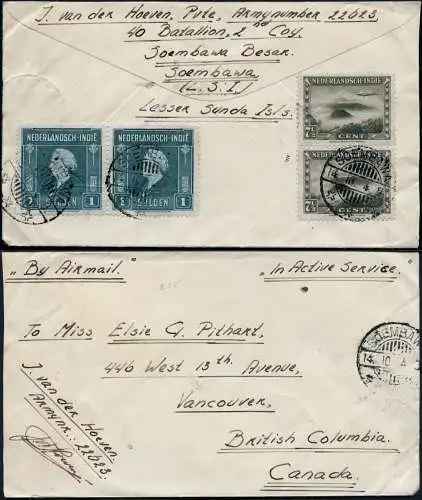 J. van der Hoeven, Pvte, Armynumber 22623
40 Batallion, 2nd Coy.
Soembawa Besar.
Soembawa
(L.S.I.)
Lesser Sunda Is/s.
NEDERLANDSCH-INDIË
NEDERLANDSCH-INDIË
1 GULDEN 1
1 GULDEN 1
NEDERLANDSCH-INDIË
7½ CENT
NEDERLANDSCH-INDIË
7½ CENT
"By Airmail."
"In Active Service."
To Miss Elsie G. Pithart,
446 West 13th Avenue,
Vancouver,
British Columbia.
Canada.
J. van der Hoeven.
Armynr.: 22623
SOEMBAWA
14 10 4